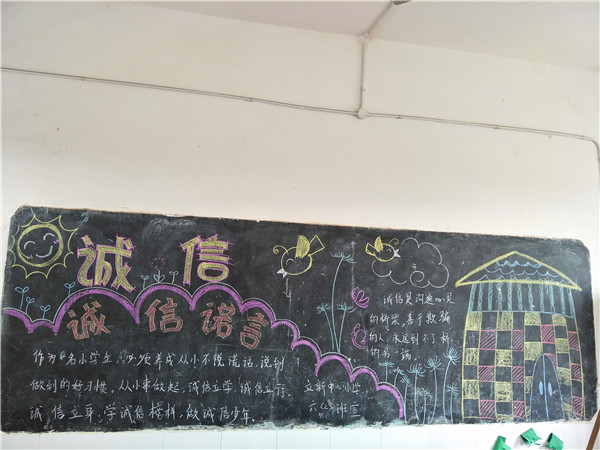 诚信
诚信诺言
作为一名小学生，必须养成从小不说谎话，说到
做到的好习惯，从小事做起，诚信立学，诚信立行，
诚信立耳，学诚信榜样，做诚信少年。
中心小学
六 班宣
诚信是沟通心灵
的桥梁，善于欺骗
的人，永远到不了桥
的另一端。